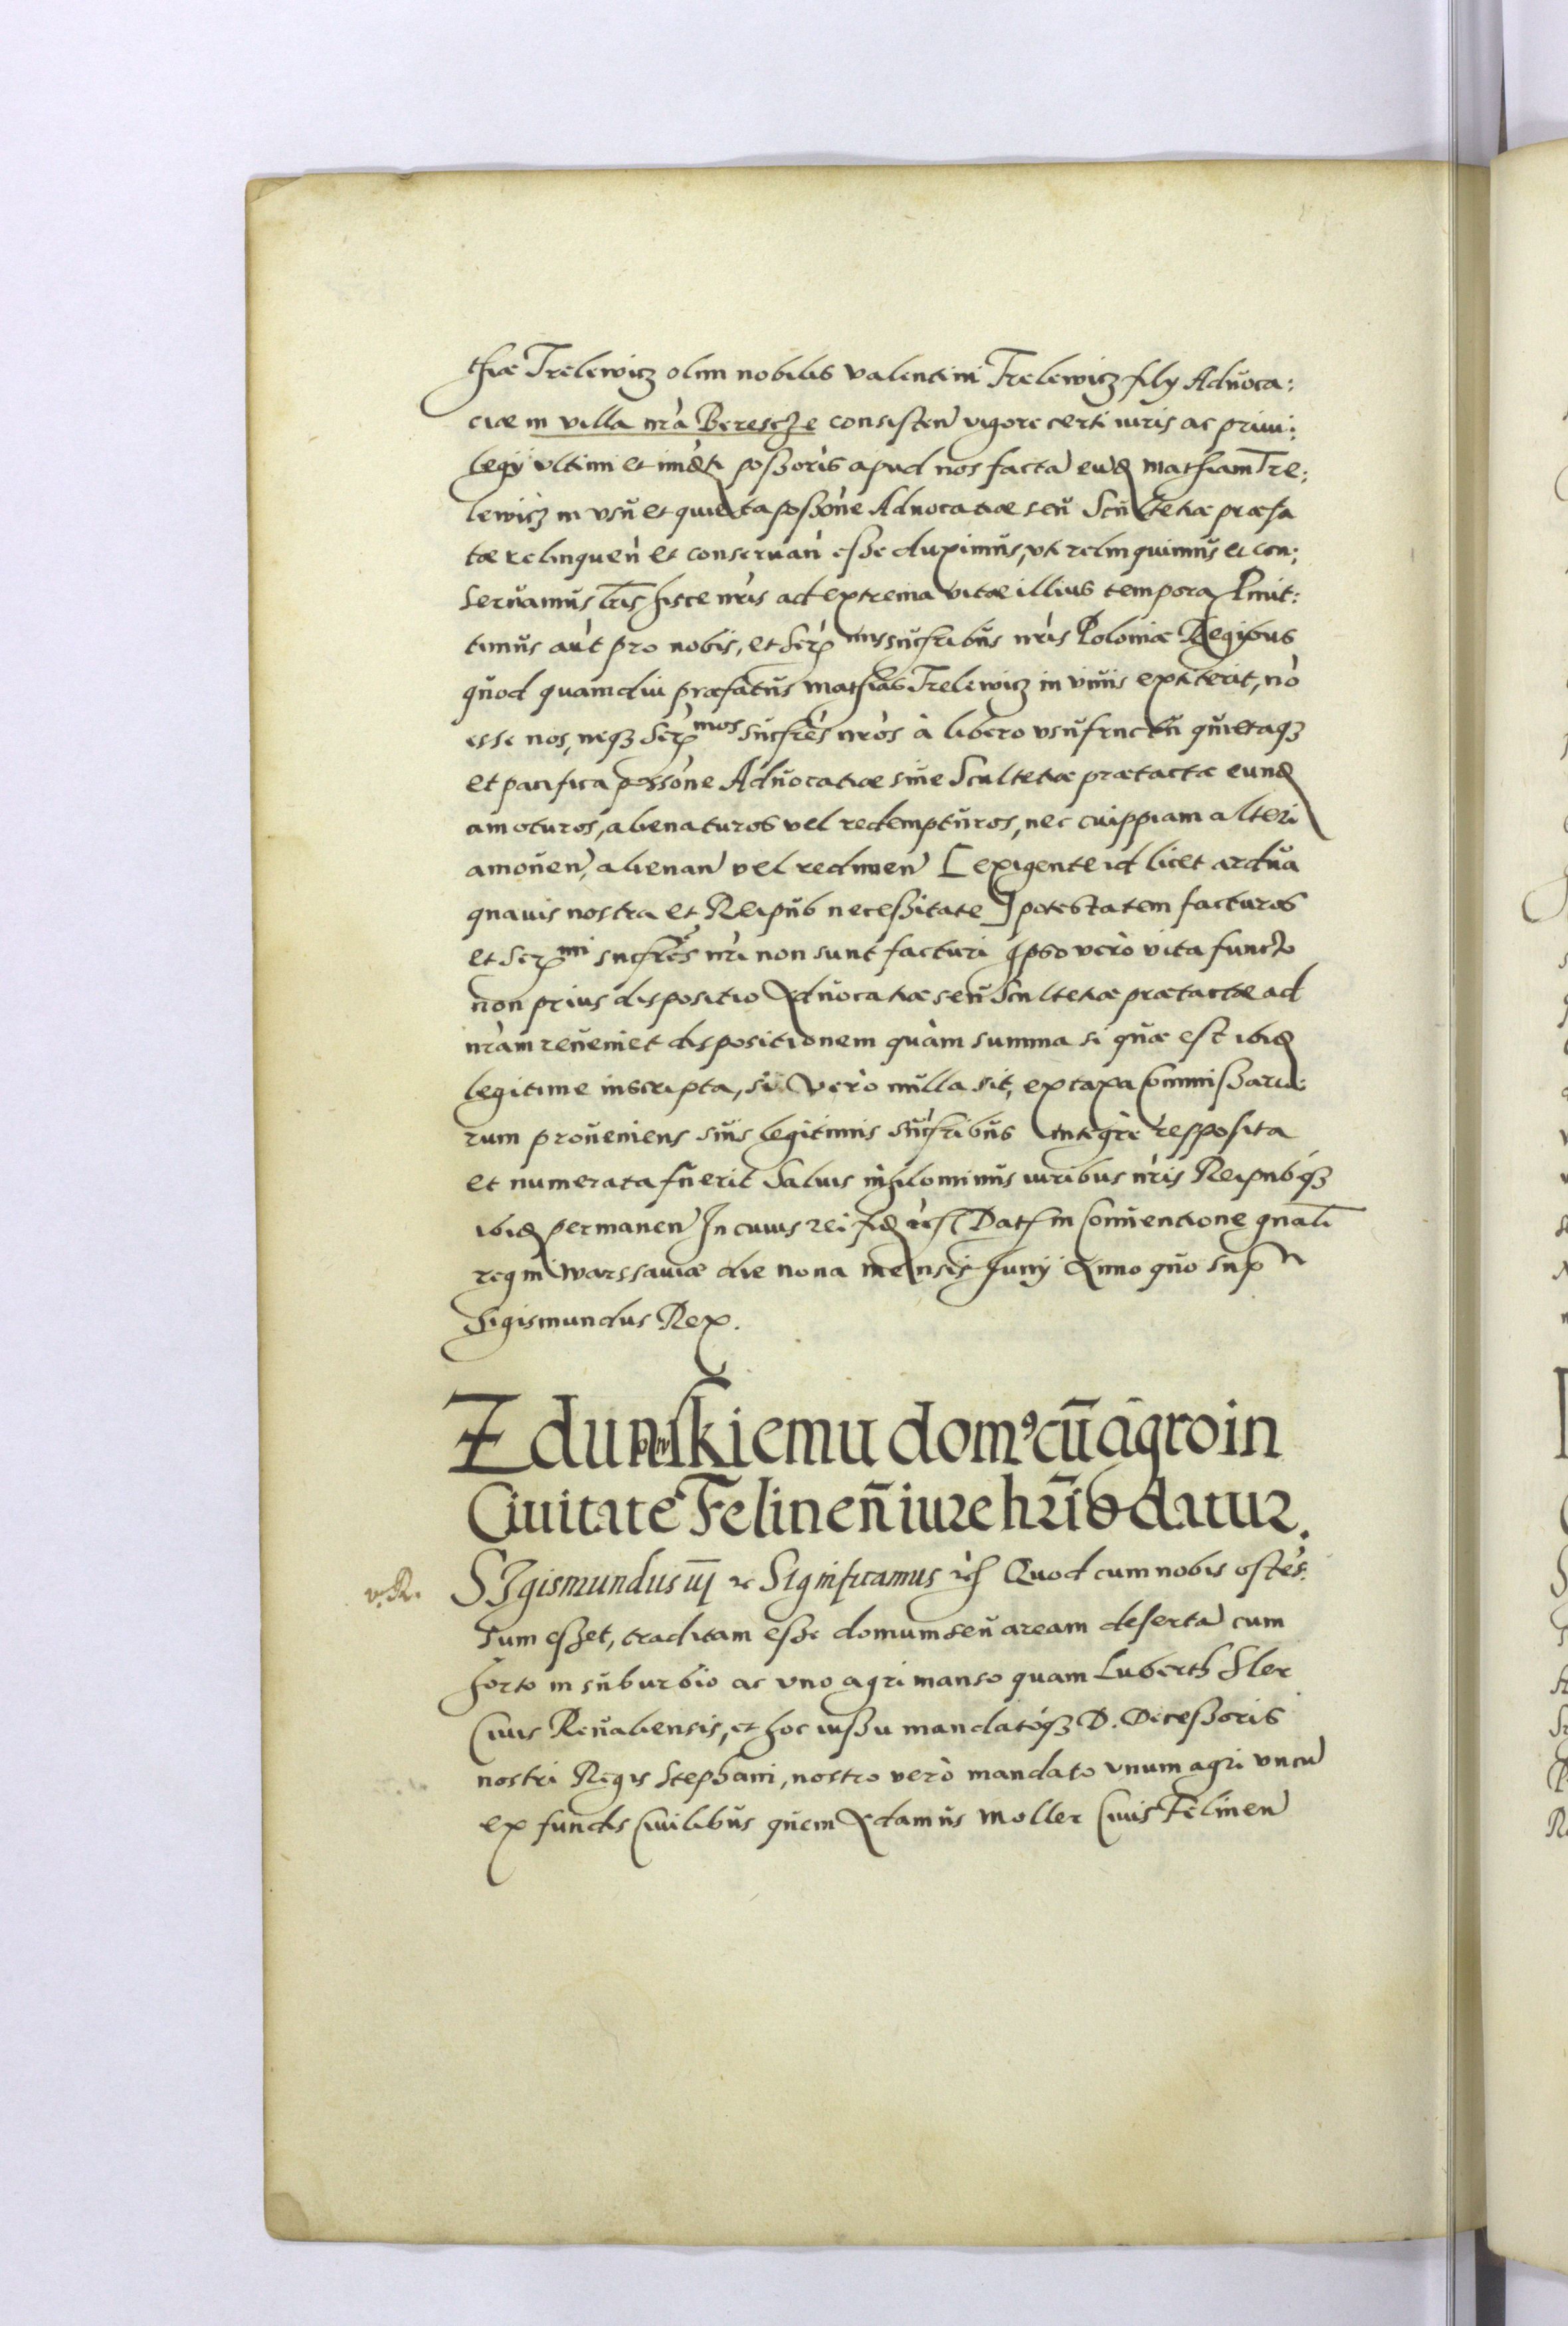 thiæ Trelewicz olim nobilis Valentini Trelewicz filÿ Aduoca:
ciæ in villa nrà Beresche consisten vigore certi iuris ac priui:
legÿ vltimi et imedti poßoris apud nos facta eund Mathiam Tre:
lewicz in vsu et quieta poßone Aduocatiæ seu Scultetiæ præfa
tæ relinquen et conseruan eße duximus, vti relinquimus et con:
seruamus lris hisce nris ad extrema vitæ illius tempora Pmit:
timus aut pro nobis, et Ser mis sucsribus nris Poloniæ Regibus
quod quamdiu præfatus Mathias Trelewicz in viuis extiterit, nò
esse nos, neqz Ser mos sucsres nros à libero vsufructu quietaqz
et pacifica possone Aduocatiæ siue Scultetiæ prætactæ eund
amoturos, alienaturos vel redempturos, nec cuippiam alteri
amouen, alienan vel redimen [exigente id licet ardua
quauis nostra et Reipub neceßitate] potestatem facturos
et Ser mi sucsres nri non sunt facturi Ipso verò vita functo
non prius dispositio Aduocatiæ seu Scultetiæ prætactæ ad
nram reueniet dispositionem quàm summa si quæ est ibid
legitime inscripta, si verò nulla sit, ex taxa Commißario
rum proueniens suis legitimis sucsribus integrè resposita
et numerata fuerit Saluis nihilominus iuribus nris Reipubqz
ibid permanen In cuius rei fid Dat in Conuentione gnali
regni Warssauiæ die nona mensis Junÿ Anno quo sup
Sigismundus Rex.
Zdunskiemu dom9 cū agro in
Ciuitate Felinen̄ iure hrīo datur.
v. R. SIgismundus iij Significamus Quod cum nobis ostes:
sum eßet, traditam eße domum seu aream deserta cum
horto in suburbio ac vno agri manso quam Luberth Sler
Ciuis Reualiensis, et hoc iußu mandatóqz D. Deceßoris
nostri Regis Stephani, nostro verò mandato vnum agri vncu
ex fundis Ciuilibus quem Adamus Moller Ciuis Felinen